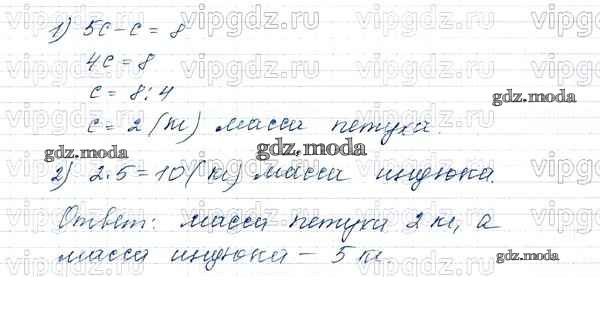 1) 5c-c=8
4c=8
c=8:4
c=2 (кг) масса петуха.
2) 2·5=10 (кг) масса индюка.
Ответ: масса петуха 2 кг, а
масса индюка – 5 кг.
vipgdz.ru vipgdz.ru vipgdz.ru vipgdz.ru
gdz.moda
gdz.moda
gdz.moda
gdz.moda
gdz.moda